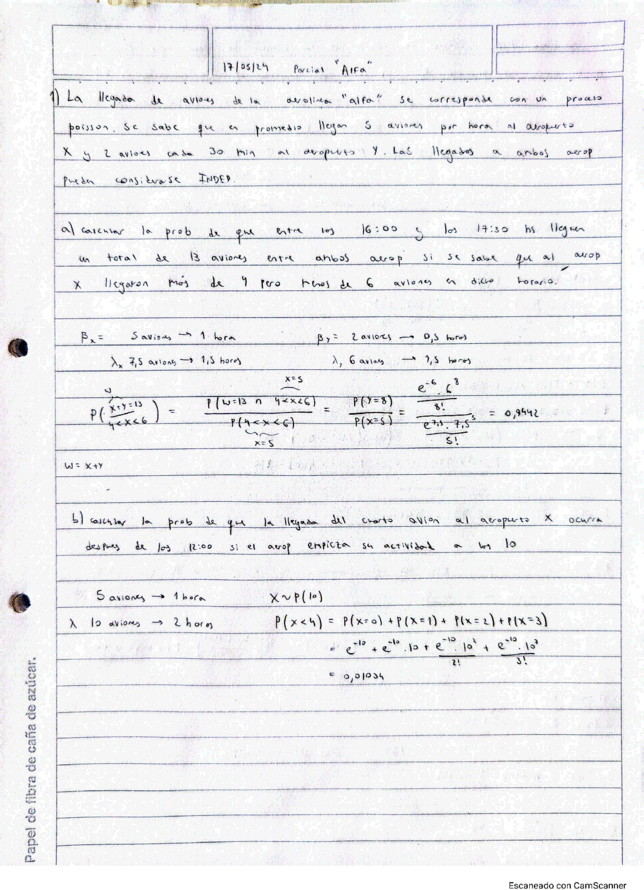 17/05/24 Parcial "Alfa"
1) La llegada de aviones de la aerolinea "alfa" se corresponde con un proceso
poisson. Se sabe que en promedio llegan 5 aviones por hora al aeropuerto
X y 2 aviones cada 30 min al aeropuerto Y. Las llegadas a ambos aerop
pueden considerarse INDEP.
a) calcular la prob de que entre las 16:00 y las 17:30 hs lleguen
un total de 13 aviones entre ambos aerop si se sabe que al aerop
X llegaron más de 4 pero menos de 6 aviones en dicho horario.
βx = 5 aviones → 1 hora βy = 2 aviones → 0,5 horas
λx 7,5 aviones → 1,5 horas λ, 6 aviones → 1,5 horas
P(X+Y=13 / 4<X<6) = P(W=13 ∩ 4<X<6) / P(4<X<6) = P(Y=8) / P(X=5) = (e^-6 . 6^8 / 8!) / (e^7,5 . 7,5^5 / 5!) = 0,9442
W = X+Y
b) calcular la prob de que la llegada del cuarto avion al aeropuerto X ocurra
despues de las 12:00 si el aerop empieza su actividad a las 10
5 aviones → 1 hora X~P(10)
λ 10 aviones → 2 horas P(X<4) = P(X=0) + P(X=1) + P(X=2) + P(X=3)
= e^-10 + e^-10 . 10 + e^-10 . 10^2 / 2! + e^-10 . 10^3 / 3!
= 0,01034
Papel de fibra de caña de azúcar.
Escaneado con CamScanner